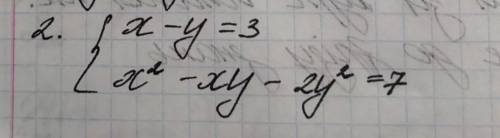 2. { x - y = 3
x² - xy - 2y² = 7